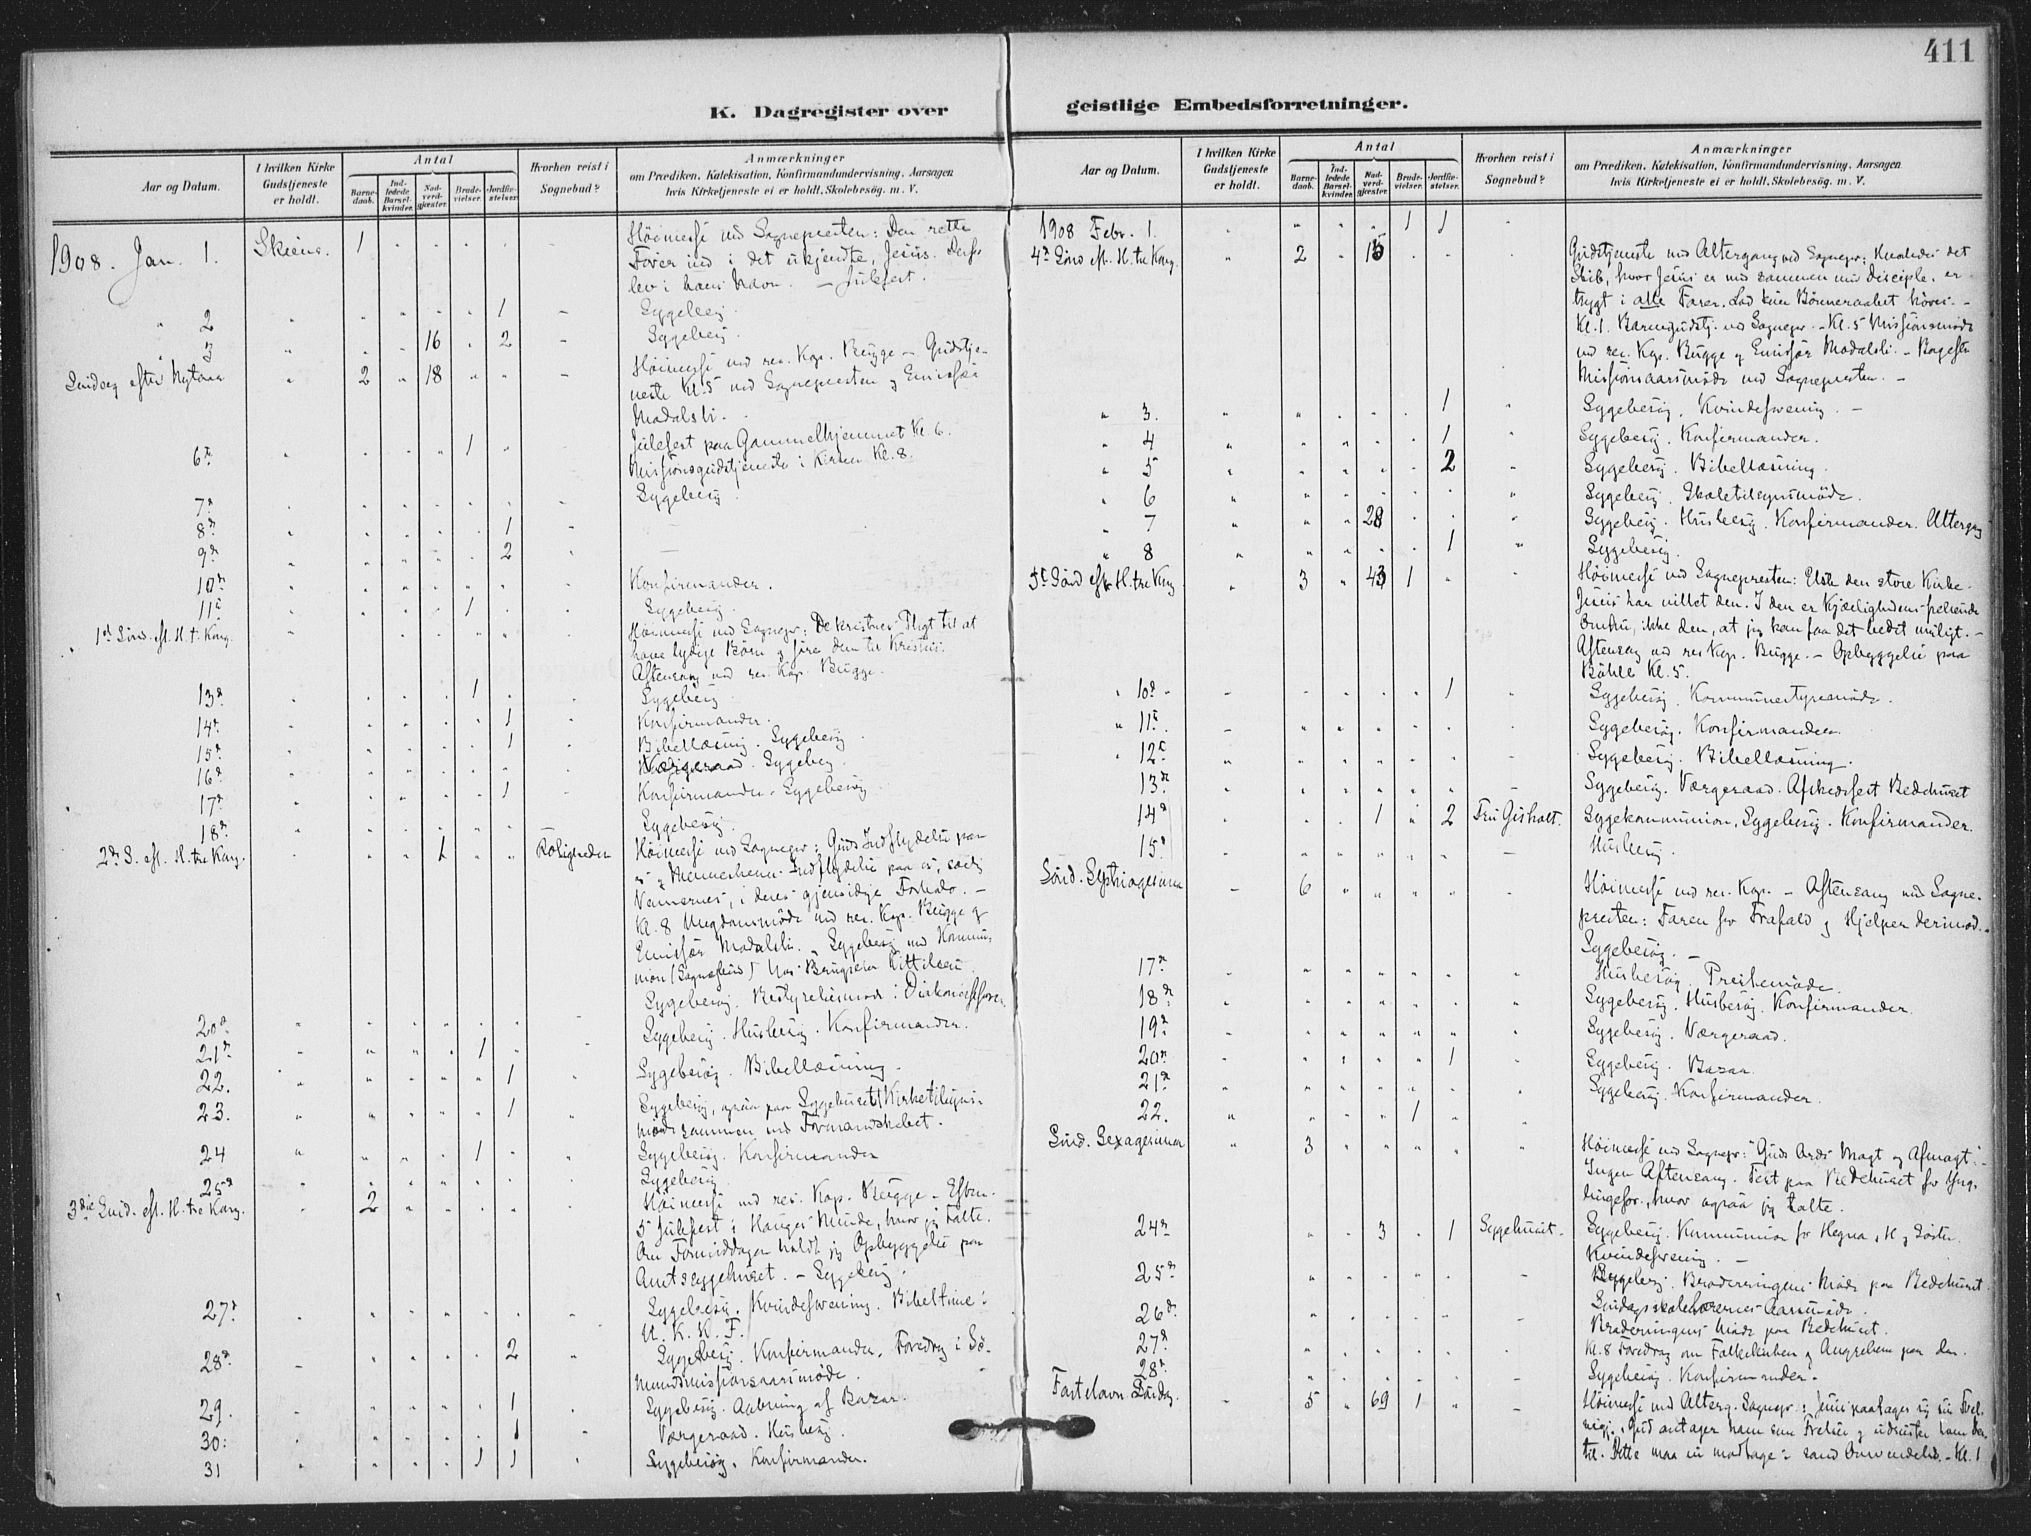 411
K. Dagregister over
geistlige Embedsforretninger.
Aar og Datum.
I hvilken Kirke Gudstjeneste er holdt.
Antal
Barnedaab.
Indledede Barselkvinder.
Nadverdgjæster.
Brudevielser.
Jordfæstelser.
Hvorhen reist i Sognebud?
Anmærkninger
om Prædiken, Katekisation, Konfirmandundervisning, Aarsagen
hvis Kirketjeneste ei er holdt, Skolebesøg. m. V.
1908. Jan. 1. Skiens. 1 Høimesse ved Sognepresten: Den rette
Fører ind i det ukjendte, Jesus. Derfor
lev i hans Navn. — Julefest.
" 2 1 Sygebesøg.
" 3 16 2 Sygebesøg.
Søndag efter Nytaar 2 18 Høimesse ved res. Kap. Bugge — Gudstje-
neste Kl. 5 ved Sognepresten og Emissær
Modalsli.
6te 1 Julefest paa Gammelhjemmet Kl. 6.
Missionsgudstjeneste i Kirken Kl. 8.
7de Sygebesøg.
8de 1
9de 2 —
10de Konfirmander.
11te 1 Sygebesøg.
1st Sønd. eft. H. t. Kong. Høimesse ved Sognepr: De kristnes Pligt til at
have lydige Børn og føre dem til Kristus.
Aftensang ved res. Kap. Bugge.
13de 1 Sygebesøg
14de 1 Konfirmander.
15de 1 Bibellæsning. Sygebesøg
16de Værgeraad. Sygebesøg
17de 1 Konfirmander. Sygebesøg
18de Sygebesøg.
2den S. eft. H. tre Kong. 1 Roligheden Høimesse ved Sognepr: Guds Indflydelse paa
os og Menneskenes Indflydelse paa os, særlig
Vennernes, i deres gjensidige Forhold. —
Kl. 8 Ungdomsmøde ved res. Kap. Bugge og
Emissær Modalsli. — Sygebesøg med Kommu-
nion (Sognebud) hos
Sygebesøg. Bestyrelsesmøde i Diakonissefor.
20de Sygebesøg. Husbesøg. Konfirmander.
21de 1 Sygebesøg. Bibellæsning.
22. 1
23. 1 Sygebesøg, ogsaa paa Sygehuset. Kirketilsyns-
møde sammen med Formandskabet.
24 1 Sygebesøg. Konfirmander
25de Sygebesøg.
3die Sønd. eft. H. tre Kong. 2 Høimesse ved res. Kap. Bugge — Efterm.
5 Julefest i Hauges Minde, hvor jeg talte.
Om Formiddagen holdt jeg Opbyggelse paa
Amtssygehuset. — Sygebesøg.
27de Sygebesøg. Kvindeforening. Bibeltime i
U. K. K. F.
28de 2 Sygebesøg. Konfirmander. Foredrag i Sø-
mandsmissionsaarsmøde.
29. 1 Sygebesøg. Aabning af Bazar.
30: 1 Værgeraad. Husbesøg.
31 1 1 Sygebesøg. Konfirmander.
Aar og Datum.
I hvilken Kirke Gudstjeneste er holdt.
Antal
Barnedaab.
Indledede Barselkvinder.
Nadverdgjæster.
Brudevielser.
Jordfæstelser.
Hvorhen reist i Sognebud?
Anmærkninger
om Prædiken, Katekisation, Konfirmandundervisning, Aarsagen
hvis Kirketjeneste ei er holdt, Skolebesøg. m. V.
1908 Febr. 1. 1 1
4de Sønd eft. H. tre Kong. 2 Gudstjeneste med Altergang ved Sognepr: det
Skib, hvor Jesus er med sammen med Disciple, er
trygt i alle Farer. Lad kun Bønneraabet høres. —
Kl. 1. Barnegudstj. ved Sognepr. — Kl. 5 Missionsmøde
ved res. Kap. Bugge og Emissær Modalsli. — Bagefter
Missionsaarsmøde ved Sognepresten. —
" 3. 1 Sygebesøg. Kvindeforening. —
" 4 1 Sygebesøg. Konfirmander.
" 5 2 Sygebesøg. Bibellæsning.
" 6 Sygebesøg. Skoletilsynsmøde.
" 7 28 Sygebesøg. Husbesøg. Konfirmander. Altergang
" 8 1 Sygebesøg.
5te Sønd eft H. tre Kong 3 43 1 Høimesse ved Sognepresten: den store Kirke.
Jesus har villet den. I den er Kjærlighedens frelsende
ikke den, at jeg kan faa det bedst muligt. —
Aftensang ved res Kap. Bugge. — Opbyggelse paa
Bøhle Kl. 5.
" 10de 1 Sygebesøg. Kommunestyremøde.
" 11te Sygebesøg. Konfirmander.
" 12te Sygebesøg. Bibellæsning.
13de Sygebesøg. Værgeraad. Afskedsfest Bedehuset
14de 1 2 Fru Gisholt. Sygekommunion. Sygebesøg. Konfirmander.
15de Husbesøg.
Sønd. Septuagesima 6 Høimesse ved res. Kap. — Aftensang ved Sogne-
presten: Faren for Frafald og Hjelpen derimod.
Sygebesøg. —
17de Husbesøg. Prestemøde.
18de Sygebesøg. Husbesøg. Konfirmander.
19de Sygebesøg. Værgeraad.
20de 1 Sygebesøg. Bazar.
21de Sygebesøg. Konfirmander.
22. 1
Sønd. Sexagesima 3 Høimesse ved Sognepr: Guds Ords Magt og Afmagt. —
Ingen Aftensang. Fest paa Bedehuset for Yng-
lingefor., hvor ogsaa jeg talte.
24de 3 1 Sygehuset. Sygebesøg. Kommunion for Hegna, H og Søster.
Kvindeforening. —
25de Sygebesøg. Møde paa Bedehuset.
26de Søndagsskolelærernes Aarsmøde.
27de Møde paa Bedehuset.
Kl. 8 Foredrag om Folkekirken og Angrebene paa den.
28de Sygebesøg. Konfirmander.
Fastelavn Søndag. 5 69 1 Høimesse med Alterg. Sognepr.: Jesus paatager sig sin Frel-
. Gud antager ham som Frelser og udruster ham der-
til. Dette maa vi modtage i sand Omvendelse. — Kl. 1